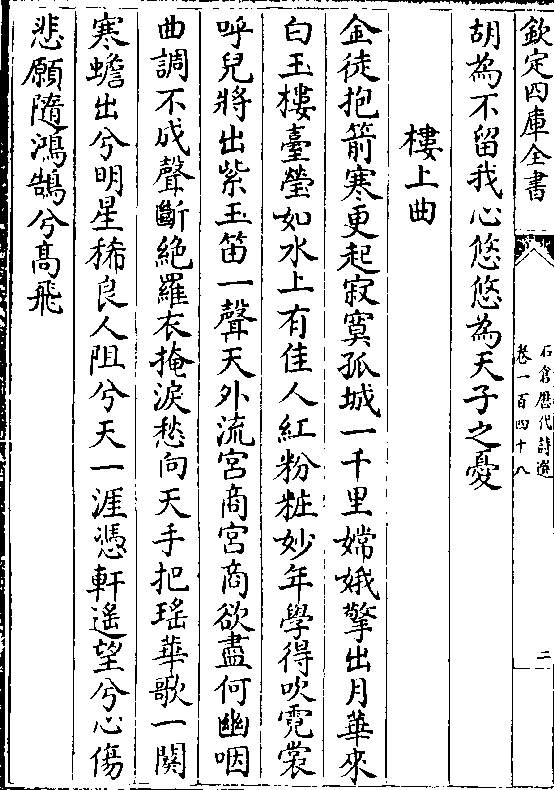 欽定四庫全書
石倉歴代詩選
卷一百四十八
二
胡為不留我心悠悠為天子之憂
樓上曲
金徒抱箭寒更起寂寞孤城一千里嫦娥擎出月華來
白玉樓臺瑩如水上有佳人紅粉粧妙年學得吹霓裳
呼兒將出紫玉笛一聲天外流宮商宮商欲盡何幽咽
曲調不成聲斷絶羅衣掩淚愁向天手把瑶華歌一闋
寒蟾出兮明星稀良人阻兮天一涯憑軒遥望兮心傷
悲願隨鴻鵠兮髙飛